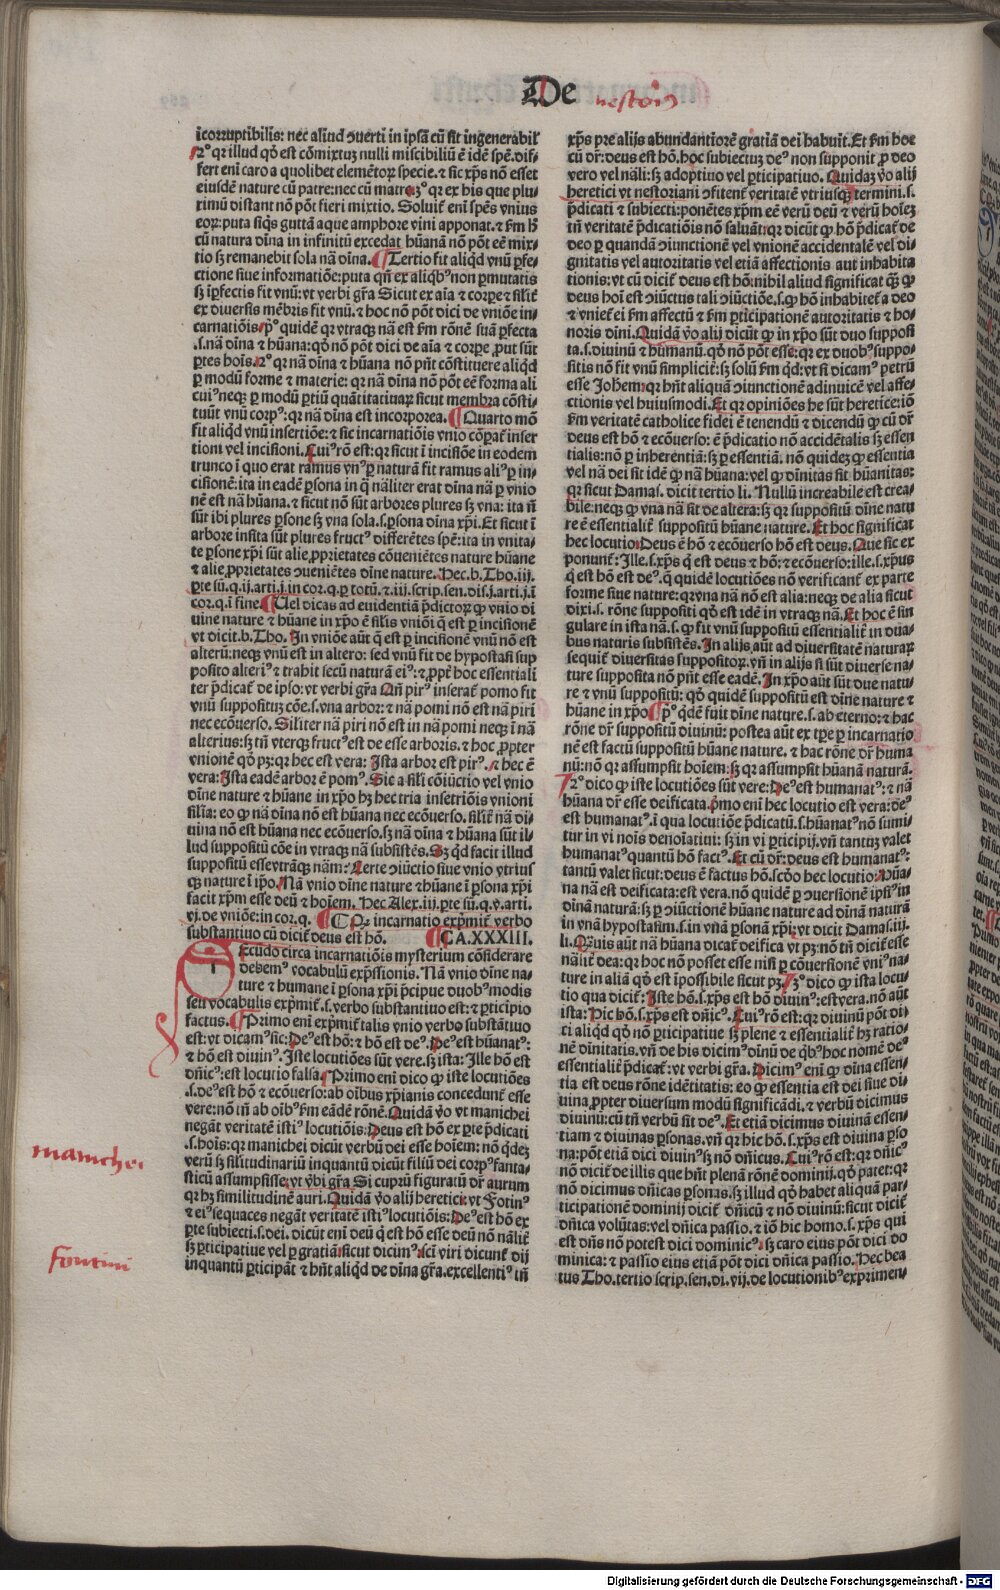 De nestoriꝰ
icorruptibilis: nec aliud ↄuerti in ipsā cū sit ingenerabilꝭ
2° qꝛ illud qđ est cōmixtuꝫ nulli miscibiliū ē idē spē. dif-
fert eni caro a quolibet elemētoꝝ specie. ⁊ sic xp̄s nō esset
eiusdē nature cū patre: nec cū matre. 3° qꝛ ex his que plu-
rimū distant nō pōt fieri mixtio. Soluit̄ eni spēs vnius
eoꝝ: puta siqͥs guttā aque amphore vini apponat. ⁊ ẜm h̄
cū natura diīna in infinitū excedat hūanā nō pōt eē mix-
tio sꝫ remanebit sola nā diīna. ¶ Tertio fit aliqͥd vnū ꝑfe-
ctione siue informatiōe: puta qn̄ ex aliqͥbꝰ non ꝑmutatis
sꝫ īꝑfectis fit vnū: vt verbi gr̄a Sicut ex aīa ⁊ corꝑe ⁊ silit̄
ex diuersis mēbris fit vnū. ⁊ hoc nō pōt dici de vniōe in-
carnatiōis. pͦ quidē qꝛ vtraqꝫ nā est ẜm rōnē suā ꝑfecta
.s. nā diīna ⁊ hūana: qđ nō pōt dici de aīa ⁊ corꝑe ꝓut sūt
ꝑtes hoīs. 2° qꝛ nā diīna ⁊ hūana nō pn̄t cōstituere aliqͥd
ꝑ modū forme ⁊ materie: qꝛ nā diīna nō pōt eē forma ali
cuiꝰ neqꝫ ꝑ modū ꝑtiū quātitatiuaꝝ sicut membra cōsti-
tuūt vnū corpꝰ: qꝛ nā diīna est incorporea. ¶ Quarto mō
fit aliqͥd vnū insertiōe: ⁊ sic incarnatiōis vnio cōꝑat̄ inser
tioni vel incisioni. Cuiꝰ rō est: qꝛ sicut ī incisiōe in eodem
trunco ī quo erat ramus vnꝰ ꝑ naturā fit ramus aliꝰ ꝑ in-
cisionē: ita in eadē ꝑsona in qͣ nāliter erat diīna nā ꝑ vnio
nē est nā hūana. ⁊ sicut nō sūt arbores plures sꝫ vna: ita nō
sūt ibi plures ꝑsone sꝫ vna sola .s. ꝑsona diīna xp̄i. Et sicut ī
arbore insita sūt plures fructꝰ differētes spē: ita in vnita-
te ꝑsone xp̄i sūt alie ꝓprietates cōueniētes nature hūane
⁊ alie ꝓprietates ↄueniētes diīne nature. Hec. b. Tho. iij.
ꝑte sū. q. ij. arti. j. in coꝛ. q. ꝑ totū. ⁊. iij. scrip. sen. dis. j. arti. j. ī
coꝛ. q. ī fine. ¶ Uel dicas ad euidentiā p̄dictoꝝ ꝙ vnio di
uine nature ⁊ hūane in xp̄o ē silis vniōi q̄ est ꝑ incisionē
vt dicit. b. Tho. In vniōe aūt q̄ est ꝑ incisionē vnū nō est
alterū: neqꝫ vnū est in altero: sed vnū fit de hypostasi sup
posito alteriꝰ ⁊ trahit secū naturā eiꝰ: ⁊ ꝓpt̄ hoc essentiali
ter p̄dicat̄ de ipso: vt verbi gr̄a Qn̄ pirꝰ inserat̄ pomo fit
vnū suppositū cōe .s. vna arbor: ⁊ nā pomi nō est nā piri
nec ecōuerso. Siliter nā piri nō est in nā pomi neqꝫ ī nā
alterius: sꝫ tn̄ vterqꝫ fructꝰ est de esse arboris. ⁊ hoc ꝓpter
vnionē qđ pꝫ: qꝛ hec est vera: Ista arbor est pirꝰ. ⁊ hec ē
vera: Ista eadē arbor ē pomꝰ. Sic a sili cōiūctio vel vnio
diīne nature ⁊ hūane in xp̄o hꝫ hec tria insetriōis vnioni
silia: eo ꝙ nā diīna nō est hūana nec ecōuerso. silit̄ nā di-
uina nō est hūana nec ecōuerso. sꝫ nā diīna ⁊ hūana sūt il-
lud suppositū cōe in vtraqꝫ nā subsistēs. Sꝫ qͥd facit illud
suppositū esse vtrāqꝫ nām: Certe ↄiūctio siue vnio vtrius
qꝫ nature ī ip̄o. Nā vnio diīne nature ⁊ hūane ī ꝑsona xp̄i
facit xp̄m esse deū ⁊ hoiem. Hec Alex. iij. ꝑte sū. q. v. arti.
vj. de vniōe: in coꝛ. q. ¶ Qꝫ incarnatio exprimit̄ verbo
substantiuo cū dicit̄ deus est hō. ¶ CA. XXXIII.
SEcūdo circa incarnatiōis mysterium cōsiderare
debemꝰ vocabulū exp̄ssionis. Nā vnio diīne na-
ture ⁊ humane ī ꝑsona xp̄i p̄cipue duobꝰ modis
seu vocabulis exp̄mit̄ .s. verbo substantiuo est: ⁊ ꝑticipio
factus. ¶ Primo eni exp̄mit̄ talis vnio verbo substātiuo
est: vt dicamꝰ sic: Deꝰ est hō: ⁊ hō est deꝰ. Deꝰ est hūanatꝰ:
⁊ hō est diuinꝰ. Iste locutiōes sūt vere. sꝫ ista: Ille hō est
dn̄icꝰ: est locutio falsa. Primo eni dico ꝙ iste locutiōes
.s. deꝰ est hō ⁊ ecōuerso: ab oībus xp̄ianis concedunt̄ esse
vere: nō tn̄ ab oībꝰ ẜm eādē rōnē. Quidā v̄o vt manichei
negāt veritatē istiꝰ locutiōis: Deus est hō ex ꝑte p̄dicati
.s. hoīs: qꝛ manichei dicūt verbū dei esse hoiem: nō qͥdeꝫ
verū sꝫ silitudinariū inquantū dicūt filiū dei corpꝰ fanta-
sticū assumpsisse: vt v̄bi gr̄a Si cuprū figuratū dr̄ aurum
qꝛ hꝫ similitudinē auri. Quidā v̄o alij heretici: vt Fotinꝰ
⁊ eiꝰ sequaces negāt veritatē istiꝰ locutiōis: Deꝰ est hō ex
ꝑte subiecti .s. dei. dicūt eni deū q̄ est hō esse deū nō nālit̄
sꝫ ꝑticipatiue vel ꝑ gratiā: sicut dicimꝰ: sc̄i viri dicunt̄ dij
inquantū ꝑticipāt ⁊ hn̄t aliqͥd de diīna gr̄a. excellentiꝰ tn̄
manichei
Fontini
xp̄s pre alijs abundantiorē gratiā dei habuit. Et ẜm hoc
cū dr̄: deus est hō. hoc subiectuꝫ deꝰ non supponit ꝓ deo
vero vel nāli: sꝫ adoptiuo vel ꝑticipatiuo. Quidaꝫ v̄o alij
heretici vt nestoriani ↄfitent̄ veritatē vtriusqꝫ termini .s.
p̄dicati ⁊ subiecti: ponētes xp̄m eē verū deū ⁊ verū hoīeꝫ
tn̄ veritatē p̄dicatiōis nō saluāt: qꝛ dicūt ꝙ hō p̄dicat̄ de
deo ꝑ quandā ↄiunctionē vel vnionē accidentalē vel di-
gnitatis vel autoritatis vel etiā affectionis aut inhabita
tionis: vt cū dicit̄ deus est hō: nihil aliud significat̄ qͣꝫ ꝙ
deus hoī est ↄiūctus tali ↄiūctiōe .s. ꝙ hō inhabitet̄ a deo
⁊ vniet̄ ei ẜm affectū ⁊ ẜm ꝑticipationē autoritatis ⁊ ho-
noris diīni. Quidā v̄o alij dicūt ꝙ in xp̄o sūt duo supposi
ta .s. diuinū ⁊ humanū. qđ nō pōt esse: qꝛ ex duobꝰ suppo-
sitis nō fit vnū simplicit̄: sꝫ solū ẜm qͥd: vt si dicamꝰ petrū
esse Johem: qꝛ hn̄t aliquā ↄiunctionē adinuicē vel affe-
ctionis vel huiusmodi. Et qꝛ opiniōes he sūt heretice: iō
ẜm veritatē catholice fidei ē tenendū ⁊ dicendū ꝙ cū dr̄
deus est hō ⁊ ecōuerso: ē p̄dicatio nō accidētalis sꝫ essen
tialis: nō ꝑ inherentiā: sꝫ ꝑ essentiā. nō quideꝫ ꝙ essentia
vel nā dei sit idē ꝙ nā hūana: vel ꝙ diīnitas sit hūanitas:
qꝛ sicut Damas. dicit tertio li. Nullū increabile est crea-
bile: neqꝫ ꝙ vna nā sit de altera: sꝫ qꝛ suppositū diīne natu
re ē essentialit̄ suppositū hūane nature. Et hoc significat
hec locutio: Deus ē hō ⁊ ecōuerso hō est deus. Que sic ex
ponunt̄: Ille .s. xp̄s q̄ est deus ⁊ hō: ⁊ ecōuerso: ille .s. xp̄us
q̄ est hō est deꝰ. q̄ quidē locutiōes nō verificant̄ ex parte
forme siue nature: qꝛ vna nā nō est alia: neqꝫ de alia sicut
dixi .s. rōne suppositi qđ est idē in vtraqꝫ nā. Et hoc ē sin
gulare in ista nā .s. ꝙ fit vnū suppositū essentialit̄ in dua-
bus naturis subsistēs. In alijs aūt ad diuersitatē naturaꝝ
sequit̄ diuersitas suppositoꝝ. vn̄ in alijs si sūt diuerse na-
ture supposita nō pn̄t esse eadē. In xp̄o aūt sūt due natu-
re ⁊ vnū suppositū: qđ quidē suppositū est diīne nature ⁊
hūane in xp̄o ¶ pͦ qͥdē fuit diīne nature .s. ab eterno: ⁊ hac
rōne dr̄ suppositū diuinū: postea aūt ex tꝑe ꝑ incarnatio
nē est factū suppositū hūane nature. ⁊ hac rōne dr̄ huma
nū: nō qꝛ assumpsit hoīem: sꝫ qꝛ assumpsit hūanā naturā.
2° dico ꝙ iste locutiōes sūt vere: Deꝰ est humanatꝰ: ⁊ nā
hūana dr̄ esse deificata. pͥmo eni hec locutio est vera: deꝰ
est humanatꝰ. ī qua locutiōe p̄dicatū .s. hūanatꝰ nō sumi-
tur in vi noīs denoīatiui: sꝫ in vi ꝑticipij. vn̄ tantuꝫ valet
humanatꝰ quantū hō factꝰ. Et cū dr̄: deus est humanatꝰ:
tantū valet sicut: deus ē factus hō. scd̄o hec locutio: Hūa-
na nā est deificata: est vera. nō quidē ꝑ ↄuersionē ipsiꝰ in
diīnā naturā: sꝫ ꝑ ↄiūctionē hūane nature ad diīnā naturā
in vnā hypostasim .s. in vnā ꝑsonā xp̄i: vt dicit Damas. iij.
li. Quis aūt nā hūana dicat̄ deifica vt pꝫ: nō tn̄ dicit̄ esse
nālit̄ dea: qꝛ hoc nō posset esse nisi ꝑ cōuersionē vniꝰ na-
ture in aliā qđ est īpossibile sicut pꝫ. 3° dico ꝙ ista locu-
tio qua dicit̄: Iste hō .s. xp̄s est hō diuinꝰ: est vera. nō aūt
ista: Hic hō .s. xp̄s est dn̄icꝰ. Cuiꝰ rō est: qꝛ diuinū pōt di-
ti aliqͥd qđ nō ꝑticipatiue sꝫ plene ⁊ essentialit̄ hꝫ ratio-
nē diīnitatis. vn̄ de his dicimꝰ diīnū de qͥbꝰ hoc nomē deꝰ
essentialit̄ p̄dicat̄: vt verbi gr̄a. Dicimꝰ eni ꝙ diīna essen-
tia est deus rōne idētitatis: eo ꝙ essentia est dei siue di-
uina ꝓpter diuersum modū significādi. ⁊ verbū dicimus
diuinū: cū tn̄ verbū sit deꝰ. Et etiā dicimus diuinā essen-
tiam ⁊ diuinas ꝑsonas. vn̄ qꝛ hic hō .s. xp̄s est diuina ꝑso
na: pōt etiā dici diuinꝰ sꝫ nō dn̄icus. Cuiꝰ rō est: qꝛ dn̄icꝰ
nō dicit̄ de illis que hn̄t plenā rōnē dominij. qđ patet: qꝛ
nō dicimus dn̄icas ꝑsonas. sꝫ illud qđ habet aliquā par-
ticipationē dominij dicit̄ dn̄icū ⁊ nō diuinū: sicut dicit̄
dn̄ica volūtas: vel dn̄ica passio. ⁊ iō hic homo .s. xp̄s qui
est dn̄s nō potest dici dominicꝰ. sꝫ caro eius pōt dici do
minica: ⁊ passio eius etiā pōt dici dn̄ica passio. Hec bea
tus Tho. tertio scrip. sen. di. vij. de locutionibꝰ exprimen-
Digitalisierung gefördert durch die Deutsche Forschungsgemeinschaft - DFG